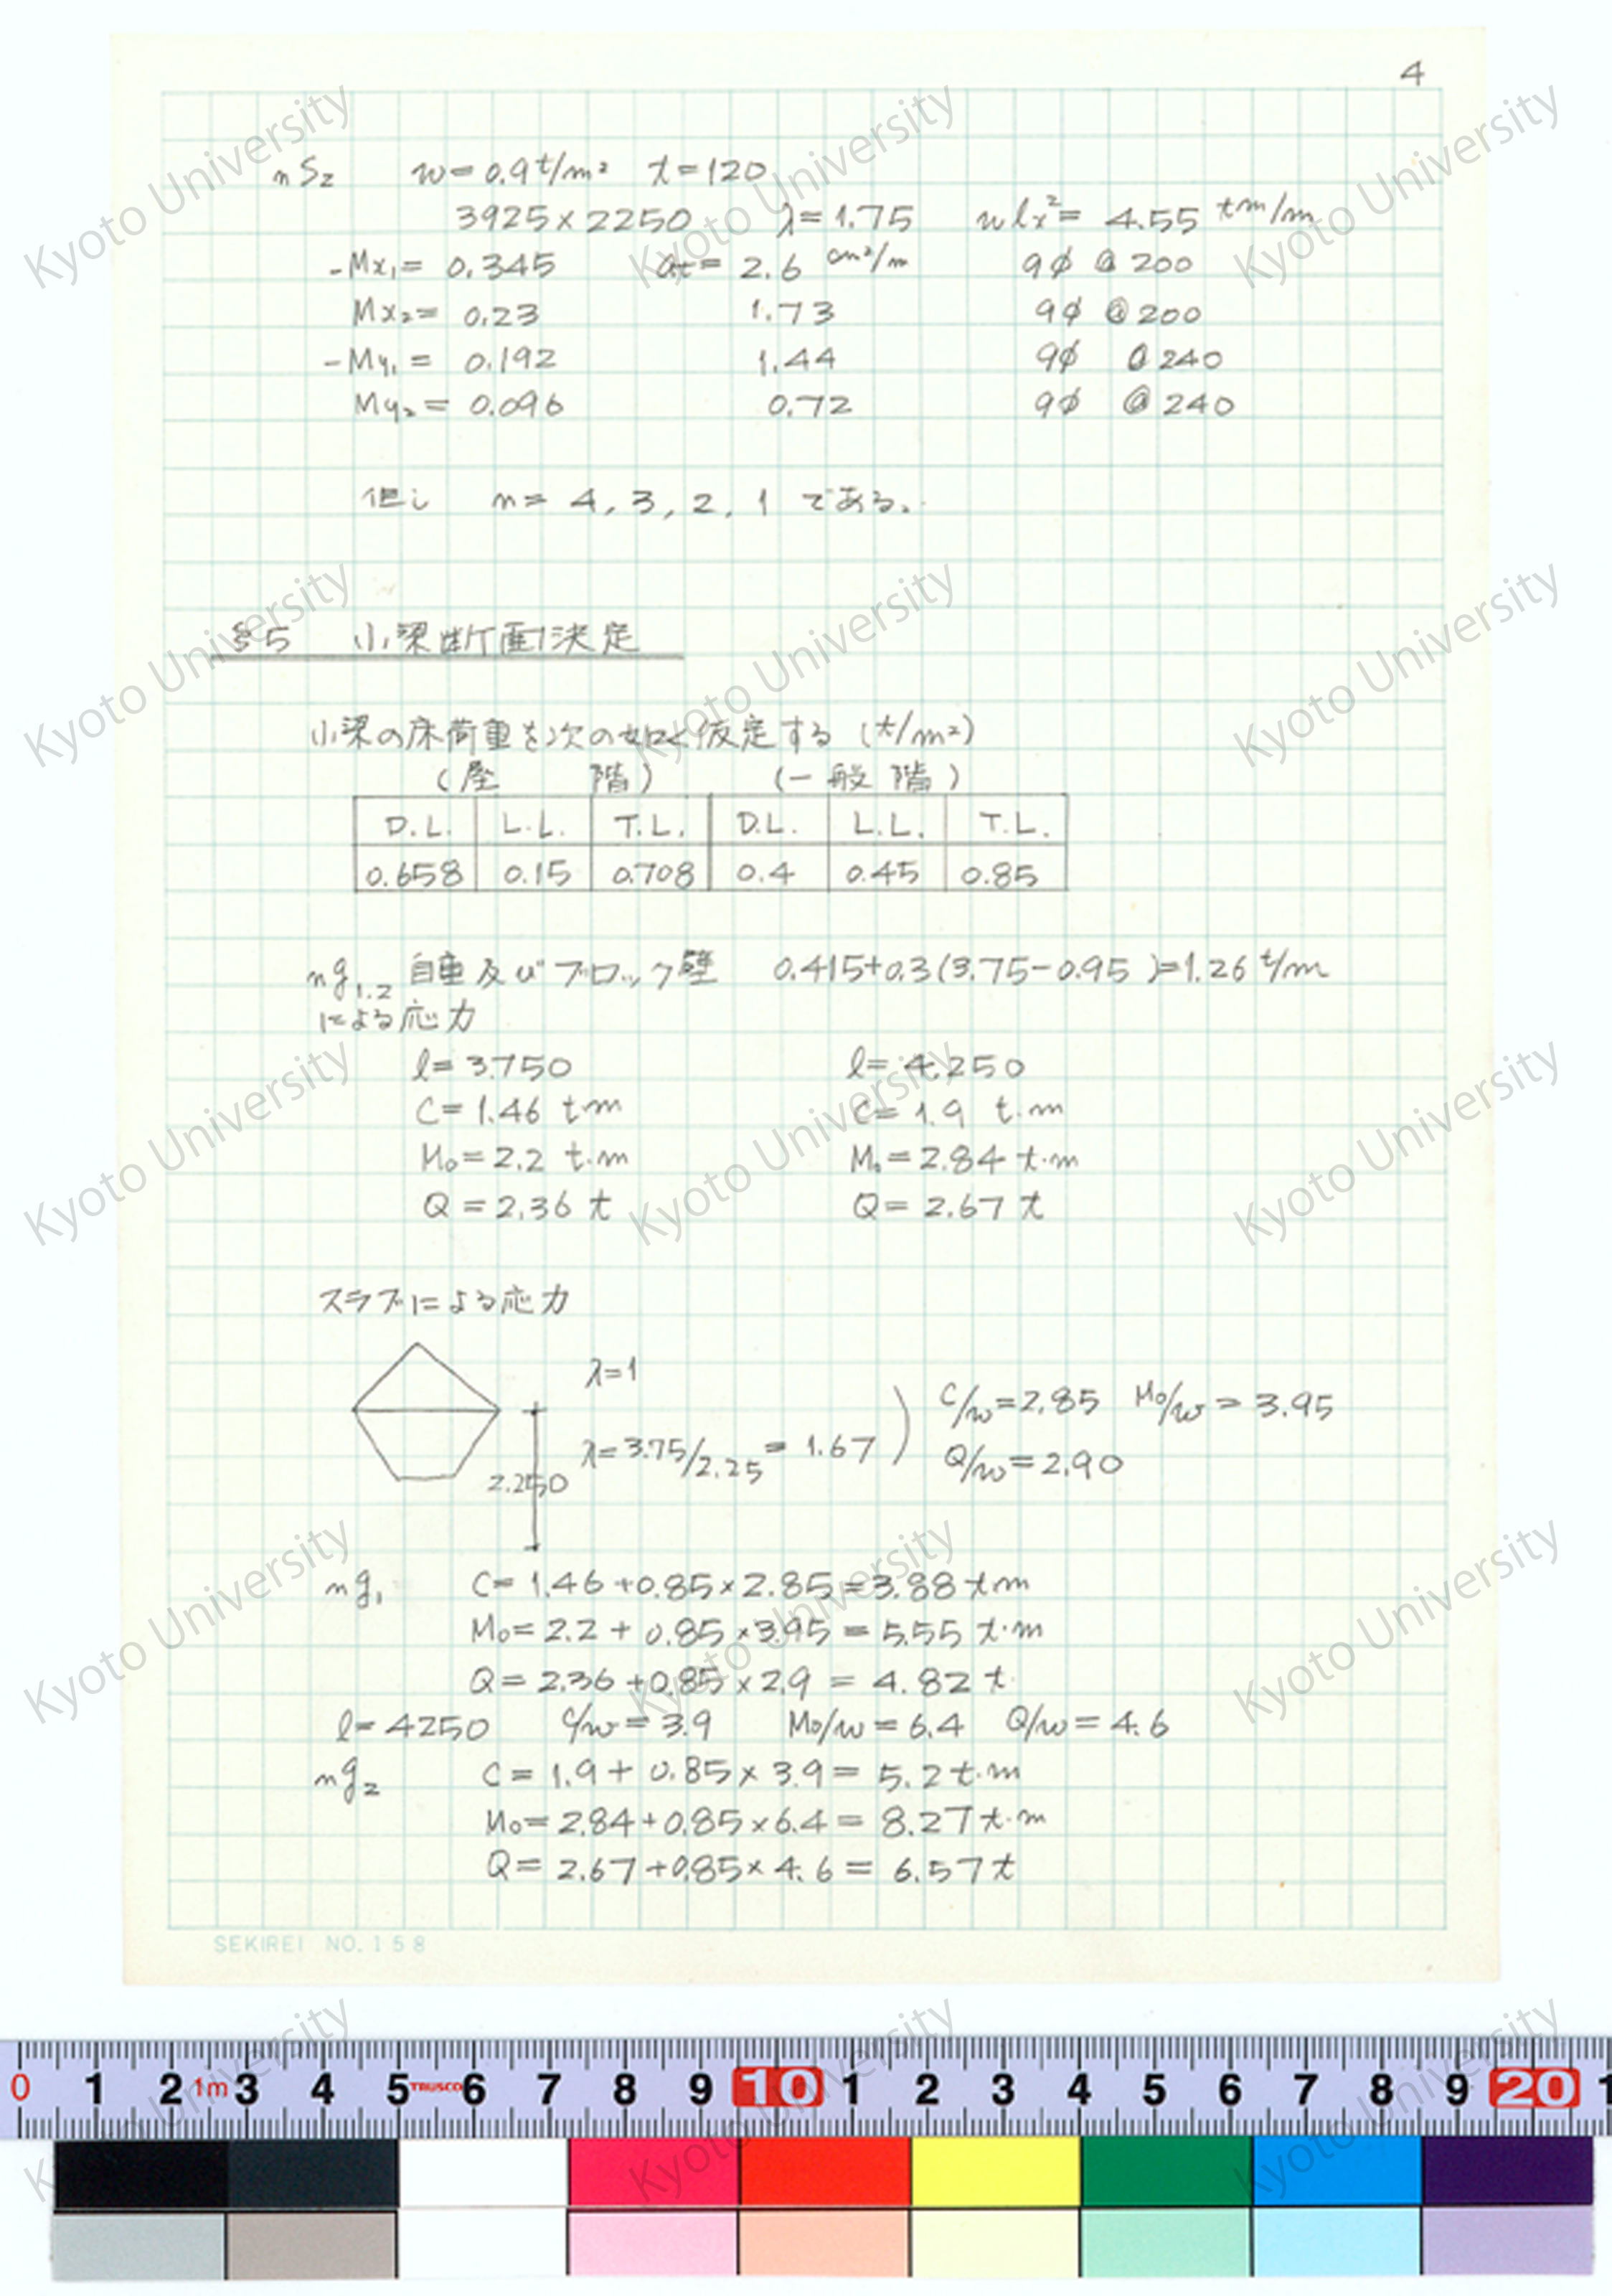 4
nS₂ w=0.9 t/m² t=120
3925×2250 λ=1.75 wlx²= 4.55 tm/m
-Mx₁= 0.345 at= 2.6 cm²/m 9φ @ 200
Mx₂= 0.23 1.73 9φ @ 200
-My₁= 0.192 1.44 9φ @ 240
My₂= 0.096 0.72 9φ @ 240
但し n= 4, 3, 2, 1 である。
§5 小梁断面決定
小梁の床荷重を次の如く仮定する (t/m²)
(屋 階) (一般階)
D.L. L.L. T.L. D.L. L.L. T.L.
0.658 0.15 0.708 0.4 0.45 0.85
ng₁.₂ 自重及びブロック壁 0.415+0.3(3.75-0.95)=1.26 t/m
による応力
l= 3.750 l= 4.250
C= 1.46 t·m C= 1.9 t·m
M₀= 2.2 t·m M₀= 2.84 t·m
Q = 2.36 t Q= 2.67 t
スラブによる応力
λ=1
C/w=2.85 M₀/w= 3.95
λ=3.75/2.25 = 1.67 )
Q/w=2.90
2.250
ng₁ C= 1.46+0.85×2.85=3.88 t·m
M₀= 2.2 + 0.85×3.95 = 5.55 t·m
Q= 2.36+0.85×2.9 = 4.82 t
l= 4250 C/w= 3.9 M₀/w= 6.4 Q/w= 4.6
ng₂ C= 1.9+ 0.85× 3.9= 5.2 t·m
M₀= 2.84+0.85×6.4= 8.27 t·m
Q= 2.67+0.85×4.6= 6.57 t
SEKIREI NO.158
Kyoto University
0 1 2 1m 3 4 5 TRUSCO 6 7 8 9 10 1 2 3 4 5 6 7 8 9 20 1